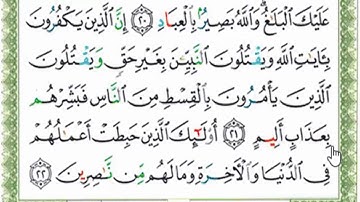 عَلَيْكَ ٱلْبَلَٰغُ وَٱللَّهُ بَصِيرٌۢ بِٱلْعِبَادِ ۝٢٠ إِنَّ ٱلَّذِينَ يَكْفُرُونَ
بِـَٔايَٰتِ ٱللَّهِ وَيَقْتُلُونَ ٱلنَّبِيِّـۧنَ بِغَيْرِ حَقٍّ وَيَقْتُلُونَ
ٱلَّذِينَ يَأْمُرُونَ بِٱلْقِسْطِ مِنَ ٱلنَّاسِ فَبَشِّرْهُم
بِعَذَابٍ أَلِيمٍ ۝٢١ أُو۟لَٰٓئِكَ ٱلَّذِينَ حَبِطَتْ أَعْمَٰلُهُمْ
فِى ٱلدُّنْيَا وَٱلْءَاخِرَةِ وَمَا لَهُم مِّن نَّٰصِرِينَ ۝٢٢